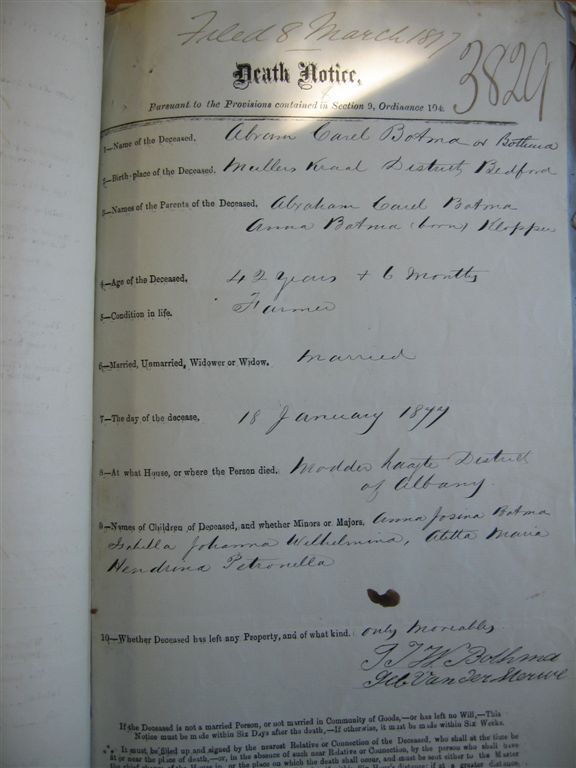 Filed 8 March 1877
3829
Death Notice,
Pursuant to the Provisions contained in Section 9, Ordinance 104.
1—Name of the Deceased, Abram Carel Botma or Bothma
2—Birth-place of the Deceased. Mullers Kraal District Bedford
3—Names of the Parents of the Deceased, Abraham Carel Botma
Anna Botma (born) Klopper
4—Age of the Deceased, 42 years + 6 Months
5—Condition in life. Farmer
6—Married, Unmarried, Widower or Widow. Married
7—The day of the decease, 18 January 1877
8—At what House, or where the Person died. Modder District
of Albany.
9—Names of Children of Deceased, and whether Minors or Majors, Anna Josina Botma
Isabella Johanna Wilhelmina, Aletta Maria
Hendrina Petronella
10—Whether Deceased has left any Property, and of what kind. only Moveables.
Bothma
Geb Van der Merwe
If the Deceased is not a married Person, or not married in Community of Goods,—or has left no Will,—This
Notice must be made within Six Days after the death,—If otherwise, it must be made within Six Weeks.
*** It must be filled up and signed by the nearest Relative or Connection of the Deceased, who shall at the time be
at or near the place of death,—or, in the absence of such near Relative or Connection, by the person who shall have
the chief charge of the House in, or the place on which the death shall occur, and must be sent either to the Master
distance; if at a greater distance,